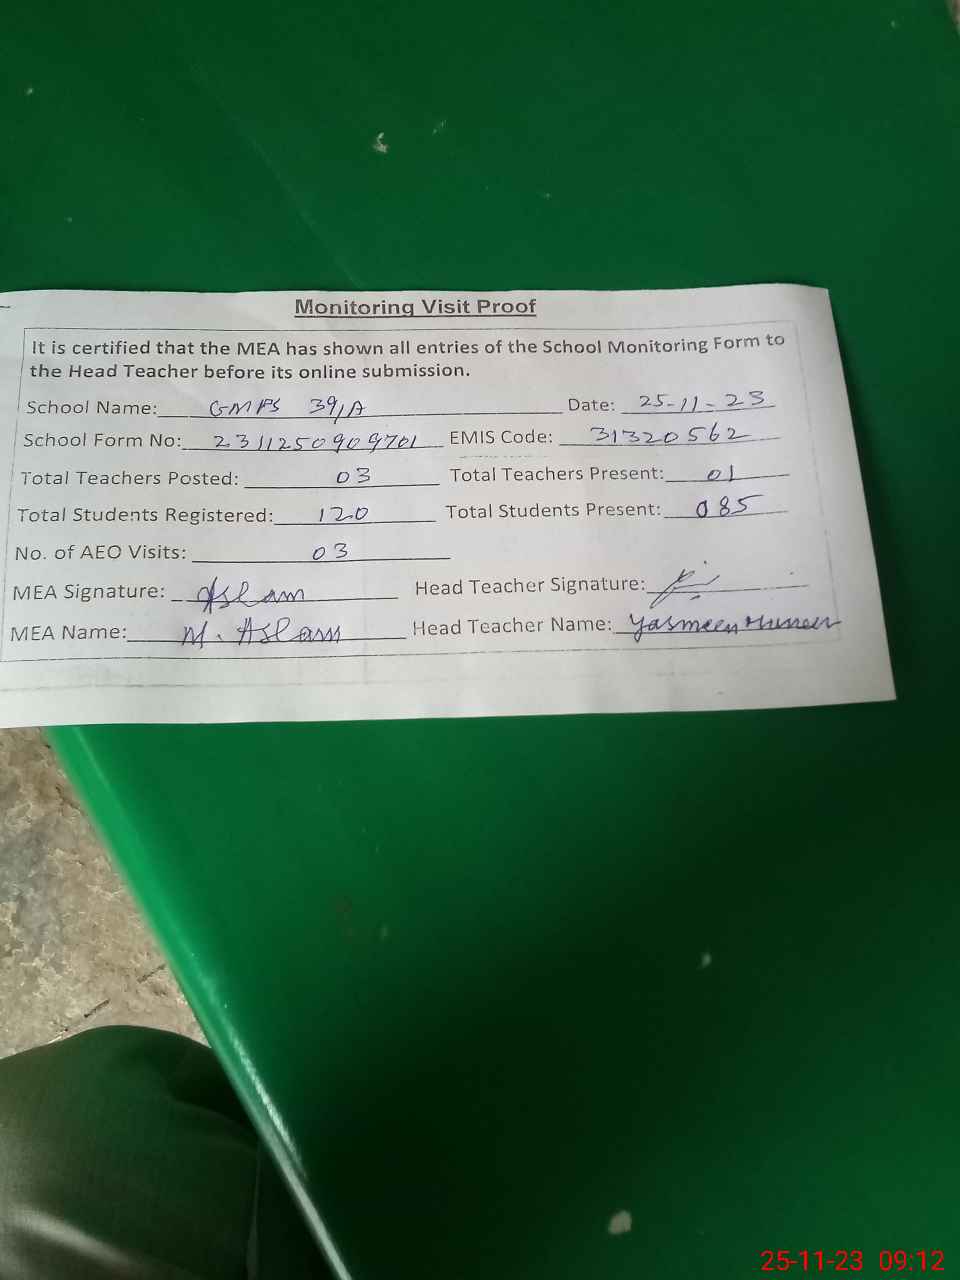 Monitoring Visit Proof
It is certified that the MEA has shown all entries of the School Monitoring Form to
the Head Teacher before its online submission.
School Name: GMPS 39/A Date: 25-11-23
School Form No: 2311250909701 EMIS Code: 31320562
Total Teachers Posted: 03 Total Teachers Present: 01
Total Students Registered: 120 Total Students Present: 085
No. of AEO Visits: 03
MEA Signature: Aslam Head Teacher Signature:
MEA Name: M. Aslam Head Teacher Name: Yasmeen Muneer
25-11-23 09:12